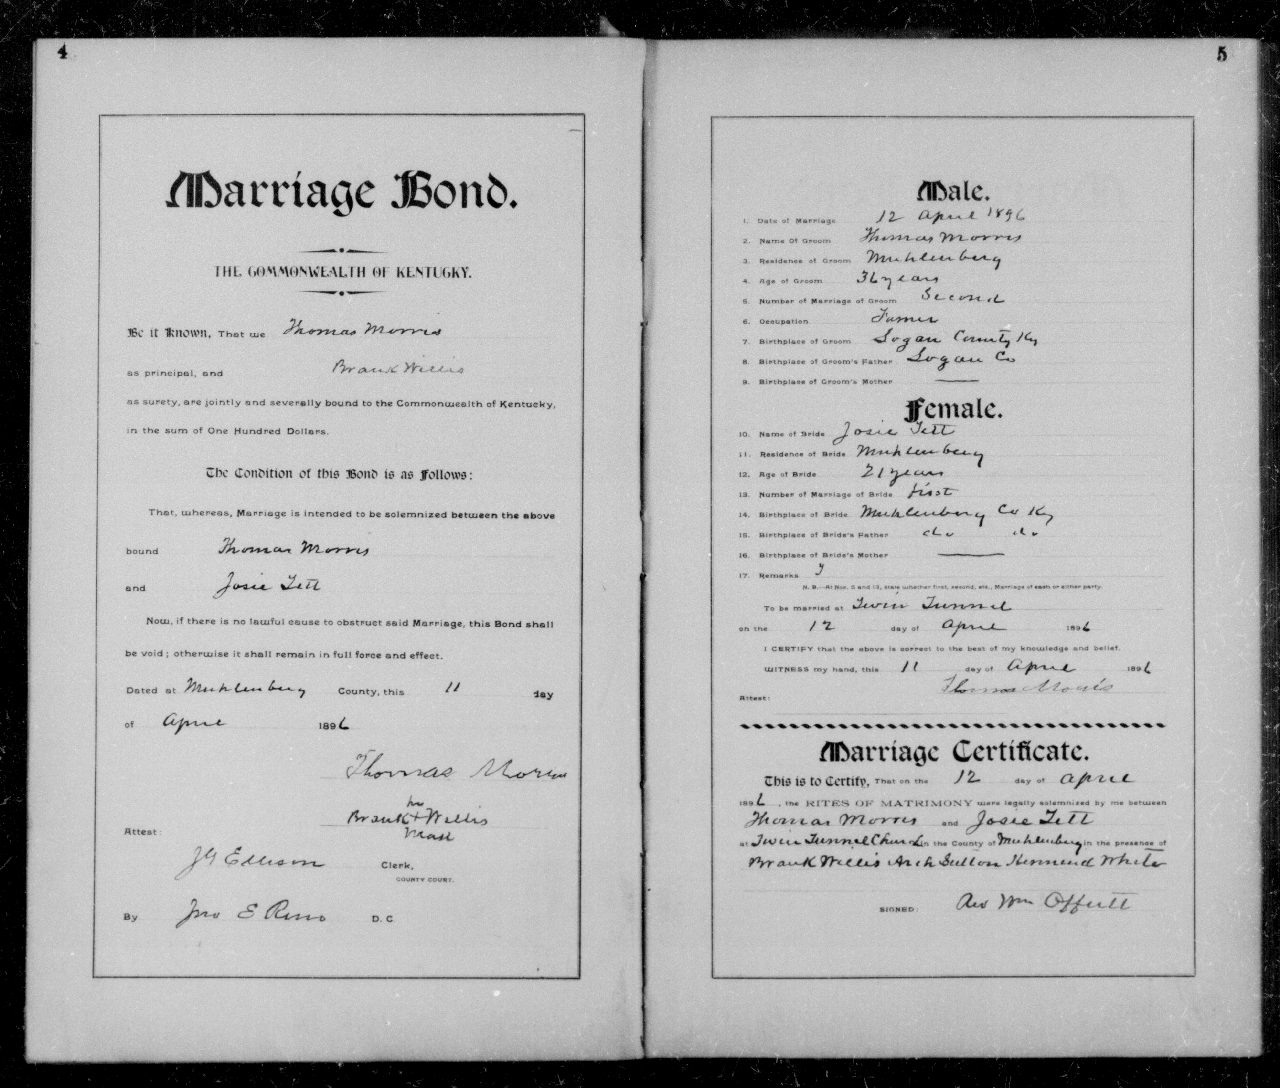 4
Marriage Bond.
THE COMMONWEALTH OF KENTUCKY.
Be it Known, That we Thomas Morris
as principal, and Brank Willis
as surety, are jointly and severally bound to the Commonwealth of Kentucky,
in the sum of One Hundred Dollars.
The Condition of this Bond is as Follows:
That, whereas, Marriage is intended to be solemnized between the above
bound Thomas Morris
and Josie Tett
Now, if there is no lawful cause to obstruct said Marriage, this Bond shall
be void; otherwise it shall remain in full force and effect.
Dated at Muhlenberg County, this 11 day
of April 1896
Thomas Morris
his
Brank + Willis
Mark
Attest:
J G Ellison Clerk,
COUNTY COURT.
By Jno E Reno D. C
5
Male.
1. Date of Marriage 12 April 1896
2. Name Of Groom Thomas Morris
3. Residence of Groom Muhlenberg
4. Age of Groom 36 years
5. Number of Marriage of Groom Second
6. Occupation Farmer
7. Birthplace of Groom Logan County Ky
8. Birthplace of Groom's Father Logan Co
9. Birthplace of Groom's Mother ——
Female.
10. Name of Bride Josie Tett
11. Residence of Bride Muhlenberg
12. Age of Bride 21 years
13. Number of Marriage of Bride first
14. Birthplace of Bride Muhlenberg Co Ky
15. Birthplace of Bride's Father do do
16. Birthplace of Bride's Mother ——
17. Remarks
N. B.—At Nos. 5 and 13, state whether first, second, etc., Marriage of each or either party.
To be married at Twin Tunnel
on the 12 day of April 1896
I CERTIFY that the above is correct to the best of my knowledge and belief.
WITNESS my hand, this 11 day of April 1896
Thomas Morris
Attest:
Marriage Certificate.
This is to Certify, That on the 12 day of April
1896, the RITES OF MATRIMONY were legally solemnized by me between
Thomas Morris and Josie Tett
at Twin Tunnel Church in the County of Muhlenberg in the presence of
Brank Willis Arch Sutton White
SIGNED: Rev Wm Offutt